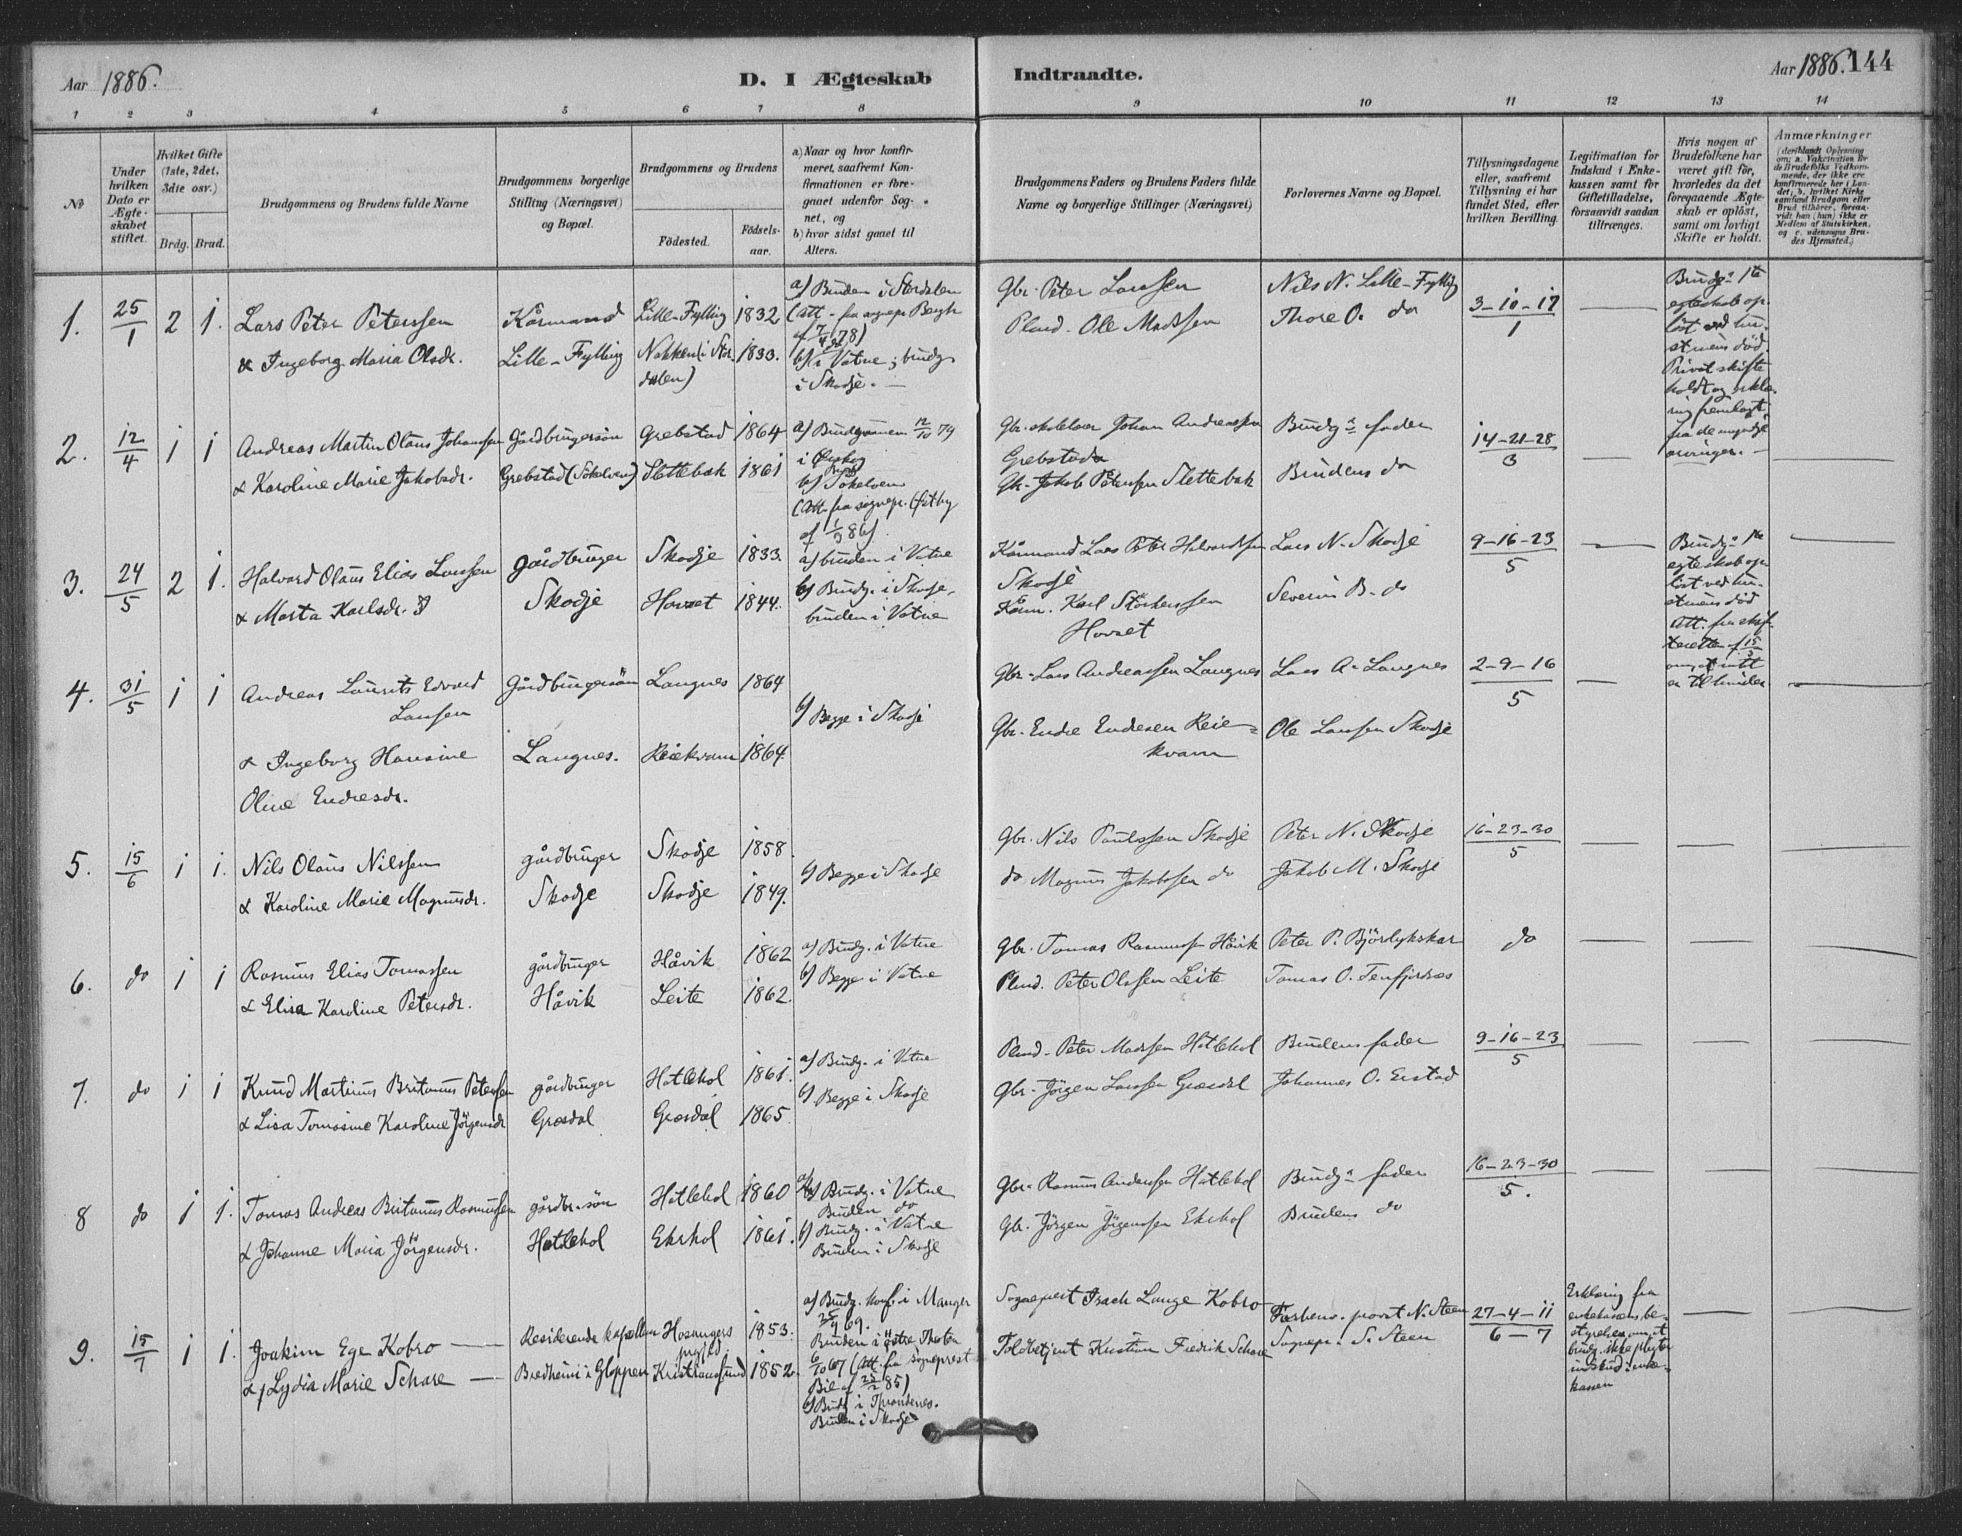 Aar 1886.
D. I Ægteskab Indtraadte.
Aar 1886. 144
1 2 3 4 5 6 7 8 9 10 11 12 13 14
No
Under hvilken Dato er Ægteskabet stiftet.
Hvilket Gifte (1ste, 2det, 3die osv.)
Brdg. Brud.
Brudgommens og Brudens fulde Navne
Brudgommens borgerlige Stilling (Næringsvei) og Bopæl.
Brudgommens og Brudens
Fødested. Fødselsaar.
a) Naar og hvor konfirmeret, saafremt Konfirmationen er foregaaet udenfor Sognet, og
b) hvor sidst gaaet til Alters.
Brudgommens Faders og Brudens Faders fulde Navne og borgerlige Stillinger (Næringsvei)
Forlovernes Navne og Bopæl.
Tillysningsdagene eller, saafremt Tillysning ei har fundet Sted, efter hvilken Bevilling.
Legitimation for Indskud i Enkekassen samt for Giftetilladelse, forsaavidt saadan tiltrænges.
Hvis nogen af Brudefolkene har været gift før, hvorledes da det foregaaende Ægteskab er opløst, samt om lovligt Skifte er holdt.
Anmærkninger
1. 25/1 2 1.
Lars Peter Peterssen
& Ingeborg Maria Olsdr.
Kårmand
Lille-Fylling
Lille-Fylling 1832
Nakken i Stordalen) 1833.
a) Bruden i Stordalen
b) i Vatne; brudg. i Skodje.
Gbr. Peter Larssen
Plmd. Ole Madssen
Nils N. Lille-Fylling
Thore O. do
3-10-17/1
2. 12/4 1 1
Andreas Martin Olaus Johanssen
& Karoline Marie Jakobsdr.
Gårdbrugersøn
Grebstad (Søkelven)
Grebstad 1864
Slettebak 1861
a) Brudgommen 12/10 79
i Ørskog
b) Søkelven
Johan Andreassen
Grebstad
Gbr. Jakob Peterssen Slettebak
Brudg.s fader
Brudens do
14-21-28/3
3. 24/5 2 1.
Halvard Olaus Elias Larssen
& Marta Karlsdr.
gårdbruger
Skodje
Skodje 1833.
Hovset 1844.
a) bruden i Vatne
b) Brudg. i Skodje,
bruden i Vatne
Kårmand Lars Peter Halvardssen
Skodje
Kårm. Karl Størkerssen
Hovset
Lars N. Skodje
Severin B. do
9-16-23/5
4. 31/5 1 1
Andreas Laurits Edvard
Larssen
& Ingeborg Hansine
Oline Endresdr.
Gårdbrugersøn
Langnes.
Langnes 1864
Reiekvam 1864.
b) Begge i Skodje
Gbr. Lars Andreassen Langnes
Gbr. Endre Endresen Reiekvam
Lars A. Langnes
Ole Larssen Skodje
2-9-16/5
5. 15/6 1 1.
Nils Olaus Nilssen
& Karoline Marie Magnusdr.
gårdbruger
Skodje
Skodje 1858.
Skodje 1849.
b) Begge i Skodje
Gbr. Nils Paulssen Skodje
do Magnus Jakobssen do
Peter N. Skodje
Jakob M. Skodje
16-23-30/5
6. do 1 1
Rasmus Elias Tomassen
& Elisa Karoline Petersdr.
gårdbruger
Håvik
Håvik 1862
Leite 1862.
a) Brudg. i Vatne
b) Begge i Vatne
Gbr. Tomas Rasmussen Håvik
Plmd. Peter Olssen Leite
Peter P. Bjørlykskar
Tomas O. Tenfjordnes
do
7. do 1 1
Knud Martinus Britanus Peterssen
& Lisa Tomasine Karoline Jørgensdr
gårdbruger
Græsdal
Hatlehol 1861.
Græsdal 1865.
a) Brudg. i Vatne
b) Begge i Skodje
Plmd. Peter Madssen Hatlehol
Gbr. Jørgen Larssen Græsdal
Brudens fader
Johannes O. Erstad
9-16-23/5
8 do 1 1.
Tomas Andreas Britanus Rasmussen
& Johanne Maria Jørgensdr.
gårdbr.søn
Hatlehol
Hatlehol 1860
Ekrhol 1861.
a) Brudg. i Vatne
Bruden do
b) Brudg. i Vatne
Bruden i Skodje
Gbr. Rasmus Anderssen Hatlehol
Gbr. Jørgen Jørgenssen Ekrhol
Brudg.s fader
Brudens do
16-23-30/5.
9. 15/7 1 1.
Joakim Ege Kobro
& Lydia Marie Schare
Residerende kapellan
Bredheim i Gloppen
Hosangers prgjeld 1853.
Kristiansund 1852.
a) Brudg. konf. i Manger
b) Brudg. i Throndenes.
Bruden i Skodje
Sogneprest Isach Lange Kobro
Toldbetjent Kristian Fredrik Schare
Forhenv. provst N. Steen
Sognepr. S. Steen
27-4-11/6-7
Erklæring fra enkekassens bestyrelse om at brudg. ikke pligter indskud i enkekassen